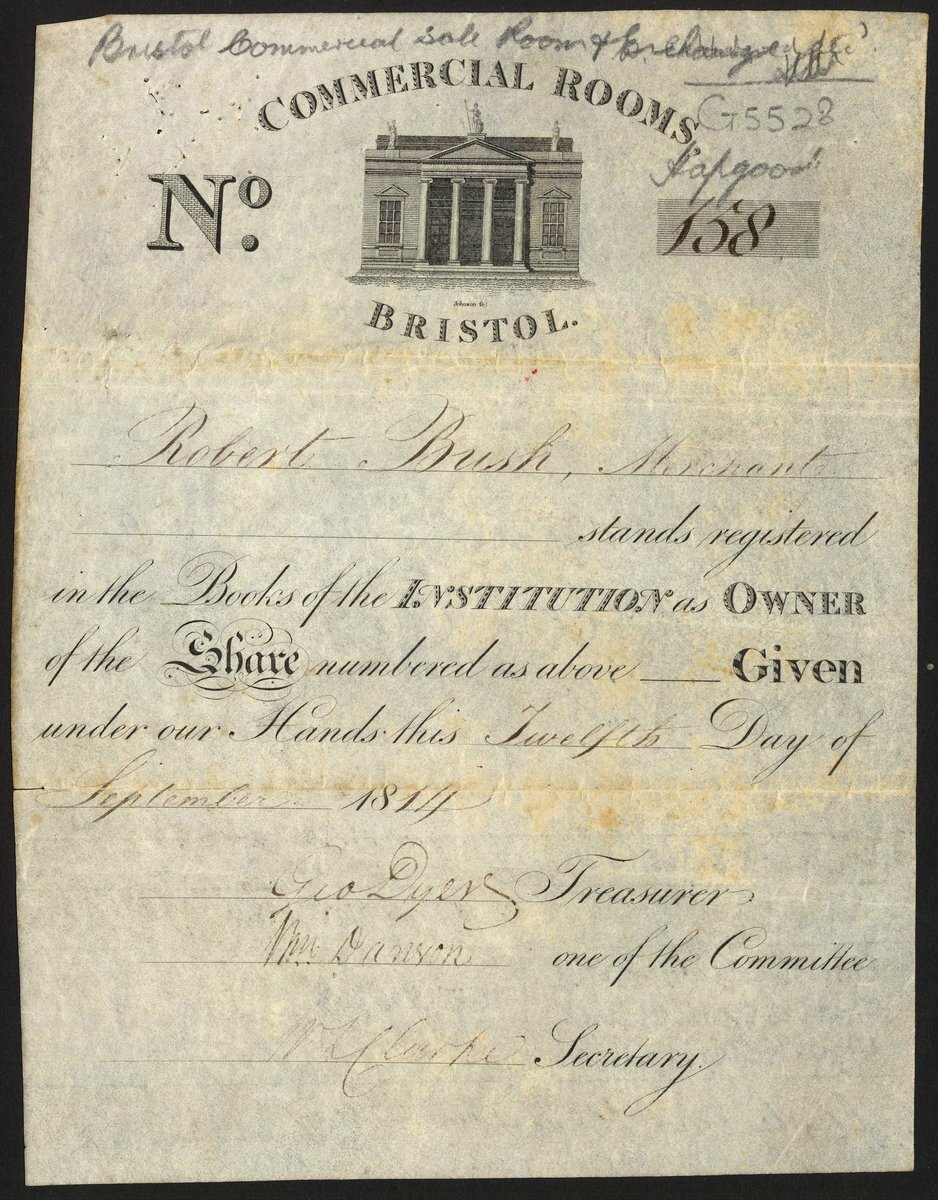 Bristol Commercial Sale Room &
COMMERCIAL ROOMS,
G5528
No. 158
Johnson Sc:
BRISTOL.
Robert Bush, Merchant
stands registered
in the Books of the INSTITUTION as OWNER
of the Share numbered as above Given
under our Hands this Twelfth Day of
September 1814
Geo Dyer Treasurer
Wm Danson one of the Committee
Clarke Secretary.